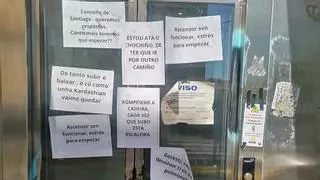 Concello de
Santiago: queremos
respostas.
Canto mais teremos
que esperar??
ESTOU ATA O
CHOCHIÑO, DE
TER QUE IR
POR OUTRO
CAMIÑO
Ascensor sen
funcionar, estrés
para empezar
De tanto subir e
baixar, o cú como
unha Kardashian
vaime quedar
ROMPESEME A
CADEIRA,
CADA VEZ
QUE SUBO
ESTA
ESCALEIRA
VISO
Ascensor sen
funcionar, estrés
para empezar
Goretti, sen